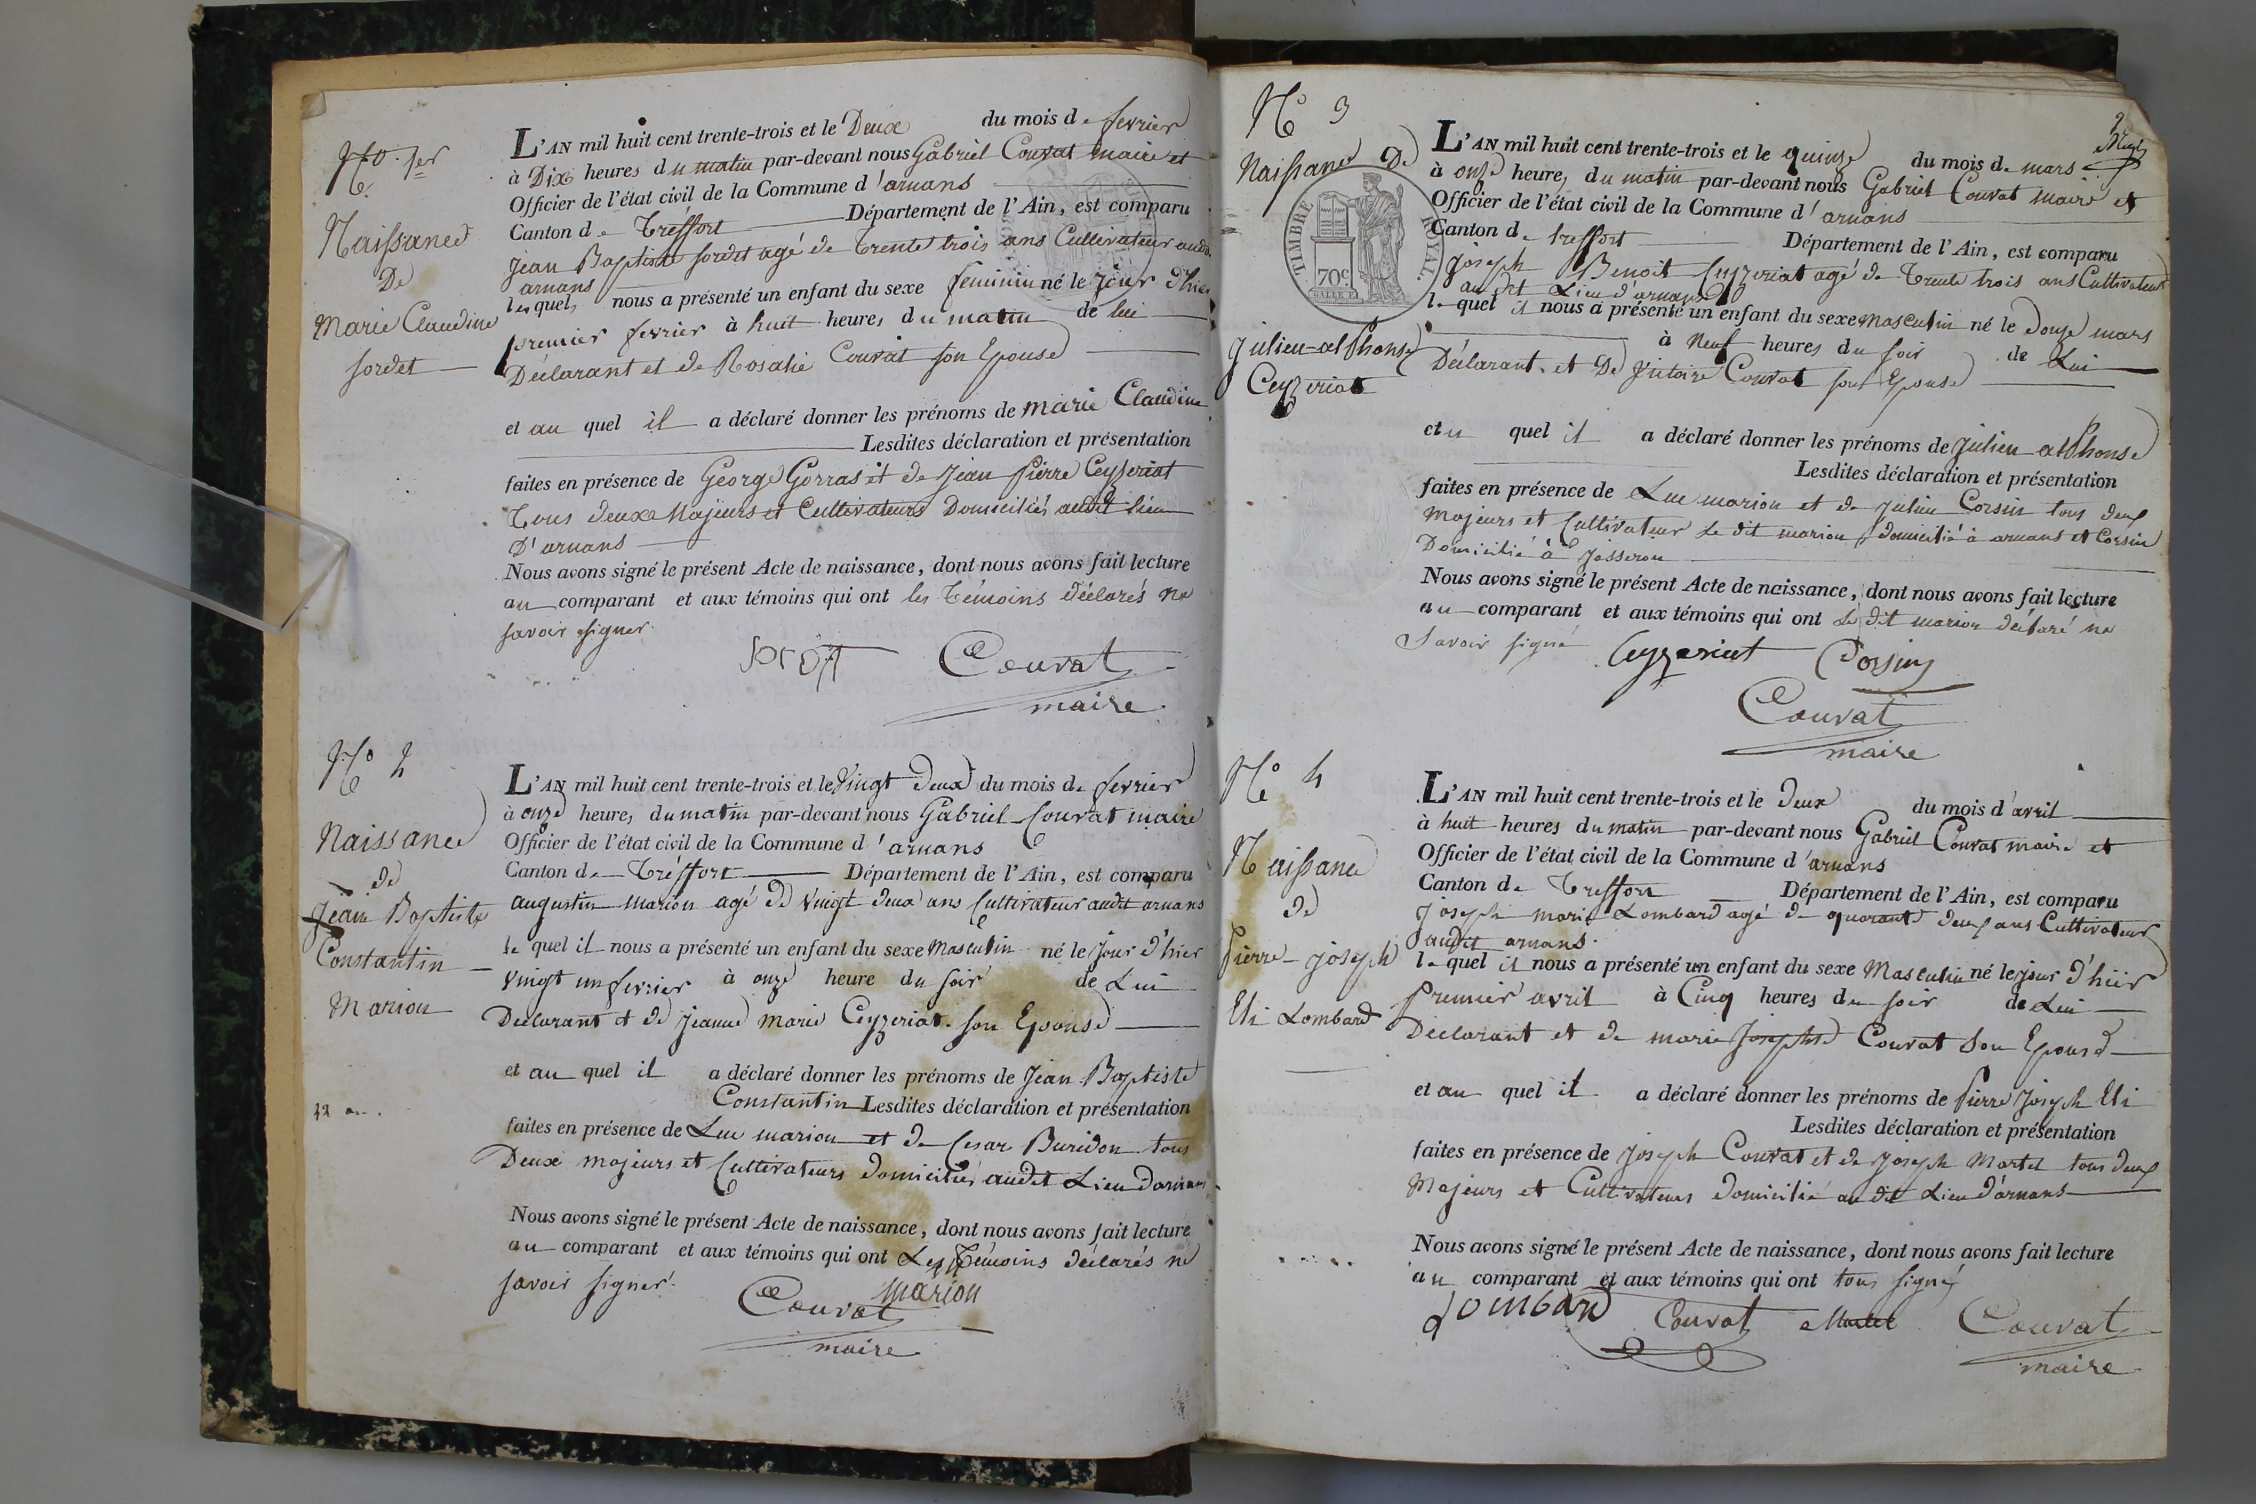 No 1er
Naissance
De
Marie Claudine
sordet
L'AN mil huit cent trente-trois et le Deux du mois de fevrier
à Dix heures du matin par-devant nous Gabriel Couvat maire et
Officier de l'état civil de la Commune d'arnans
Canton de Tréffort Département de l'Ain, est comparu
Jean Baptiste sordet agé de Trente trois ans Cultivateur audit
arnans
lesquel, nous a présenté un enfant du sexe feminin né le jour d'hier
premier fevrier à huit heures du matin de lui
Déclarant et de Rosalie Couvat son Epouse
et au quel il a déclaré donner les prénoms de marie Claudine
Lesdites déclaration et présentation
faites en présence de George Gorras et de Jean Pierre Ceyzeriat
Tous deux Majeurs et Cultivateurs Domiciliés audit lieu
D'arnans
Nous avons signé le présent Acte de naissance, dont nous avons fait lecture
au comparant et aux témoins qui ont les Témoins déclarés ne
savoir signer
Couvat
maire
No 2
Naissance
de
Jean Baptiste
Constantin
Marion
L'AN mil huit cent trente-trois et le Vingt deux du mois de fevrier
à onze heure, du matin par-devant nous Gabriel Couvat maire
Officier de l'état civil de la Commune d'arnans
Canton de Tréffort Département de l'Ain, est comparu
augustin marion agé de vingt deux ans Cultivateur audit arnans
le quel il nous a présenté un enfant du sexe Masculin né le jour d'hier
vingt un fevrier à onze heure du soir de Lui
Declarant et de jeanne marie Ceyzeriat son Epouse
et au quel il a déclaré donner les prénoms de Jean Baptiste
Constantin Lesdites déclaration et présentation
faites en présence de Luc marion et de Cesar Buridon tous
Deux majeurs et Cultivateurs domiciliés audit Lieu darnans
Nous avons signé le présent Acte de naissance, dont nous avons fait lecture
au comparant et aux témoins qui ont Les Témoins déclarés ne
savoir signer
marion
Couvat
maire
No 3
Naissance De
Julien-alphonse
Ceyzeriat
TIMBRE ROYAL.
70c.
L'AN mil huit cent trente-trois et le quinze du mois de mars
à onze heure, du matin par-devant nous Gabriel Couvat maire et
Officier de l'état civil de la Commune d'arnans
Canton de treffort Département de l'Ain, est comparu
Joseph Benoit Ceyzeriat agé de Trente trois ans Cultivateur
au dit Lieu d'arnans
le quel il nous a présenté un enfant du sexe masculin né le douze mars
à Neuf heures du soir de Lui
Déclarant et De Victoire Couvat son Epouse
et u quel il a déclaré donner les prénoms de Julien alphonse
Lesdites déclaration et présentation
faites en présence de Luc marion et de Julien Corsin tous deux
Majeurs et Cultivateur Le dit marion domicilié à arnans et Corsin
Domicilié à Josseron
Nous avons signé le présent Acte de naissance, dont nous avons fait lecture
au comparant et aux témoins qui ont Le dit marion déclaré ne
savoir signé
Ceyzeriat Corsin
Couvat
maire
No 4
Naissance
de
Pierre-joseph
Eli Lombard
L'AN mil huit cent trente-trois et le deux du mois d'avril
à huit heures du matin par-devant nous Gabriel Couvat maire et
Officier de l'état civil de la Commune d'arnans
Canton de Treffort Département de l'Ain, est comparu
joseph marie Lombard agé de quarante deux ans Cultivateur
audit arnans
le quel il nous a présenté un enfant du sexe Masculin né le jour d'hiir
Premier avril à Cinq heures du soir de Lui
Déclarant et de marie Josephte Couvat son Epouse
et au quel il a déclaré donner les prénoms de Pierre Joseph Eli
Lesdites déclaration et présentation
faites en présence de Joseph Couvat et de Joseph Martel tous deux
Majeurs et Cultivateurs domicilié au dit Lieu d'arnans
Nous avons signé le présent Acte de naissance, dont nous avons fait lecture
au comparant et aux témoins qui ont tous signé
Lombard Couvat Martel Couvat
maire